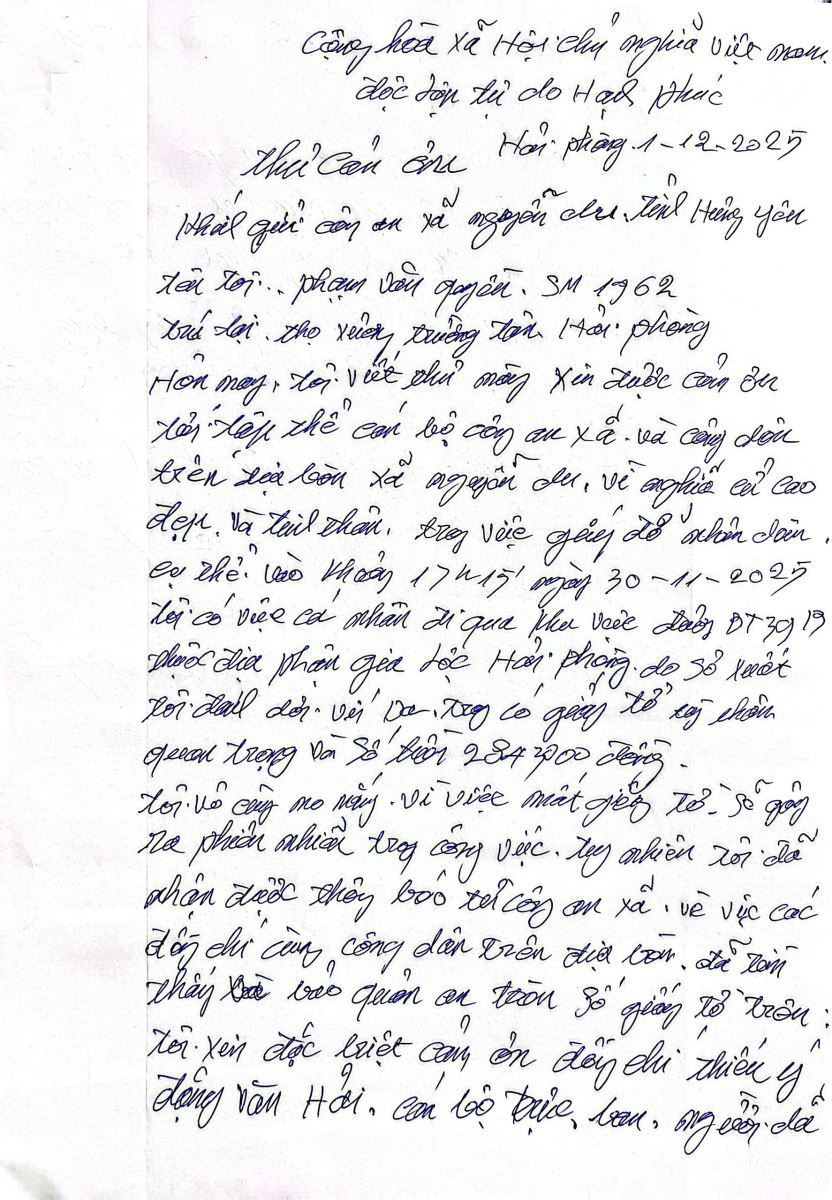 Cộng hòa xã Hội chủ nghĩa Việt nam.
độc lập tự do Hạnh phúc
Hải phòng. 1-12-2025
thư cảm ơn
Khái gửi công an xã nguyễn du. tỉnh Hưng yên
tên tôi... phạm văn quyền. SN 1962
trú tại. thọ xương trường tân. Hải phòng
Hôm nay, tôi viết thư này xin được cảm ơn
tới tập thể cán bộ công an xã. và công dân
trên địa bàn xã nguyễn du. vì nghĩa cử cao
đẹp. và tinh thần. trong việc giúp đỡ nhân dân.
cụ thể. vào khoảng 17h15' ngày 30-11-2025
tôi có việc cá nhân đi qua khu vực đường
thuộc địa phận gia lộc Hải phòng. do sơ xuất
tôi đánh rơi ví da. trong có giấy tờ tùy thân
quan trọng và số tiền đồng.
tôi vô cùng lo lắng. vì việc mất giấy tờ. sẽ gây
ra phiền nhiễu trong công việc. tuy nhiên tôi đã
nhận được thông báo từ công an xã. về việc các
đồng chí cùng công dân trên địa bàn. đã tìm
thấy và bảo quản an toàn số giấy tờ trên.
tôi. xin đặc biệt cảm ơn đồng chí thiếu úy
đặng văn Hải. cán bộ trực. ban. người. đã